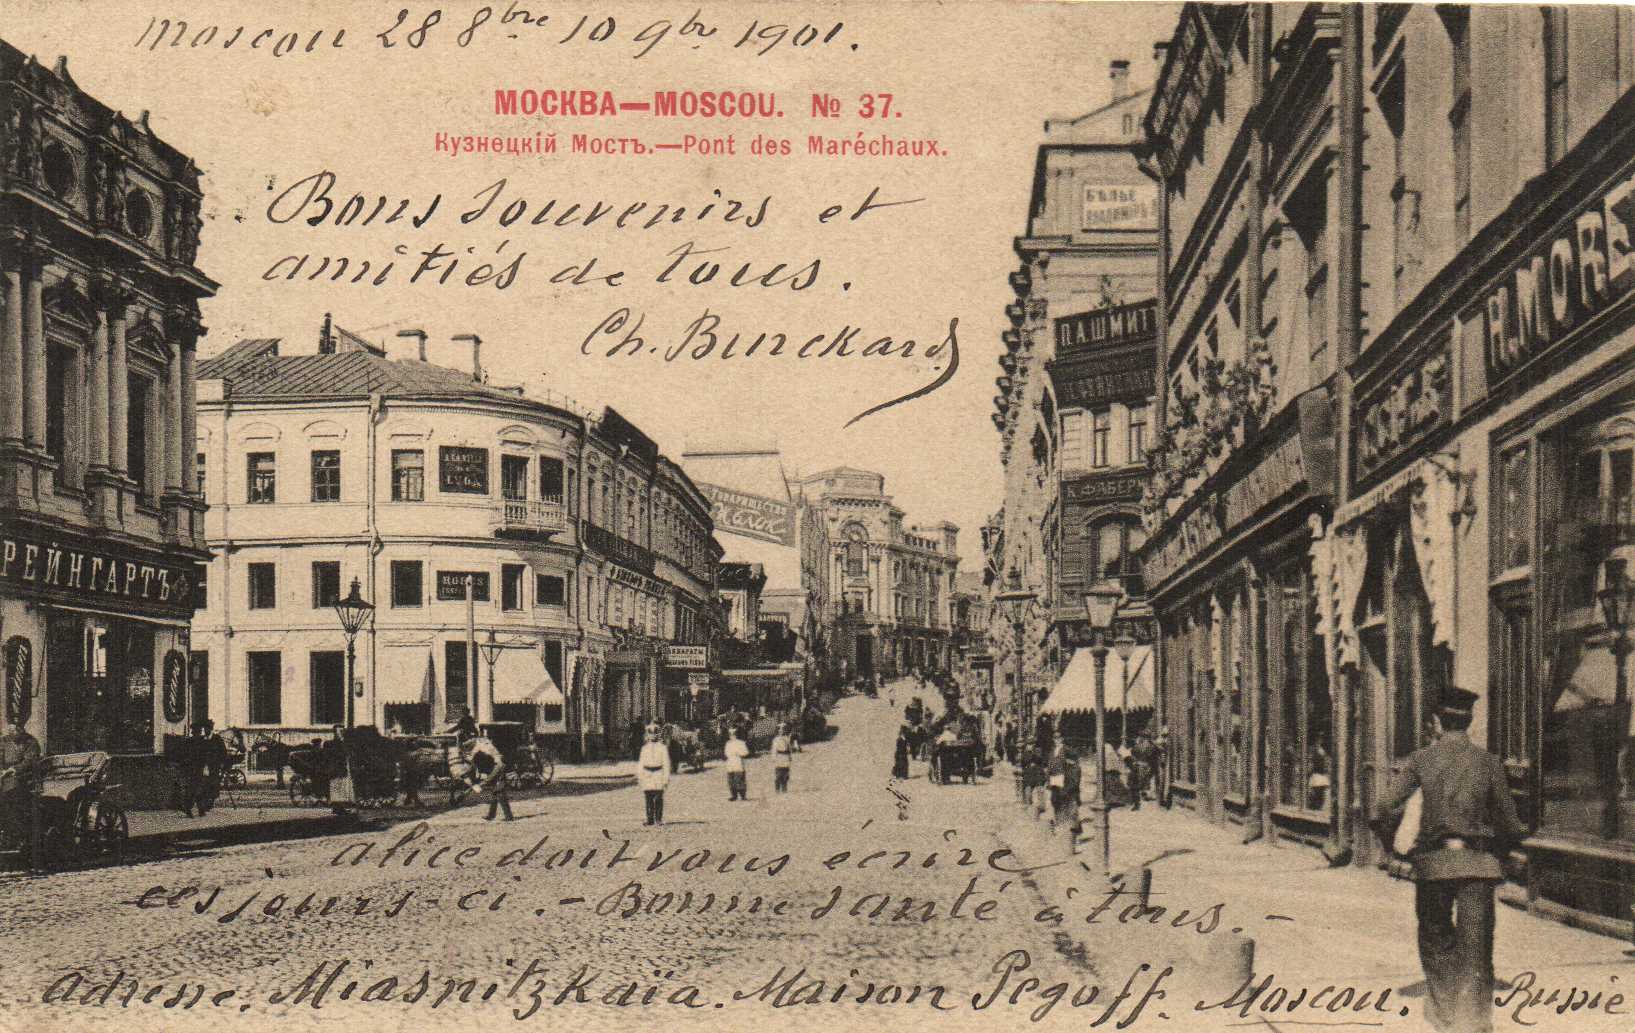 Moscou 28 8bre 10 9bre 1901.
МОСКВА—MOSCOU. № 37.
Кузнецкій Мостъ.—Pont des Maréchaux.
Bons souvenirs et
amitiés de tous.
Ch. Burckard
БѢЛЬЕ
П.А.ШМИТ
К.ФАБЕРЖ
РЕЙНГАРТЪ
ROBES
ТОВАРИЩЕСТВО
alice doit vous écrire
ces jours-ci.- Bonne santé à tous.-
Adresse. Miasnitzkaïa. Maison Pegoff. Moscou. Russie